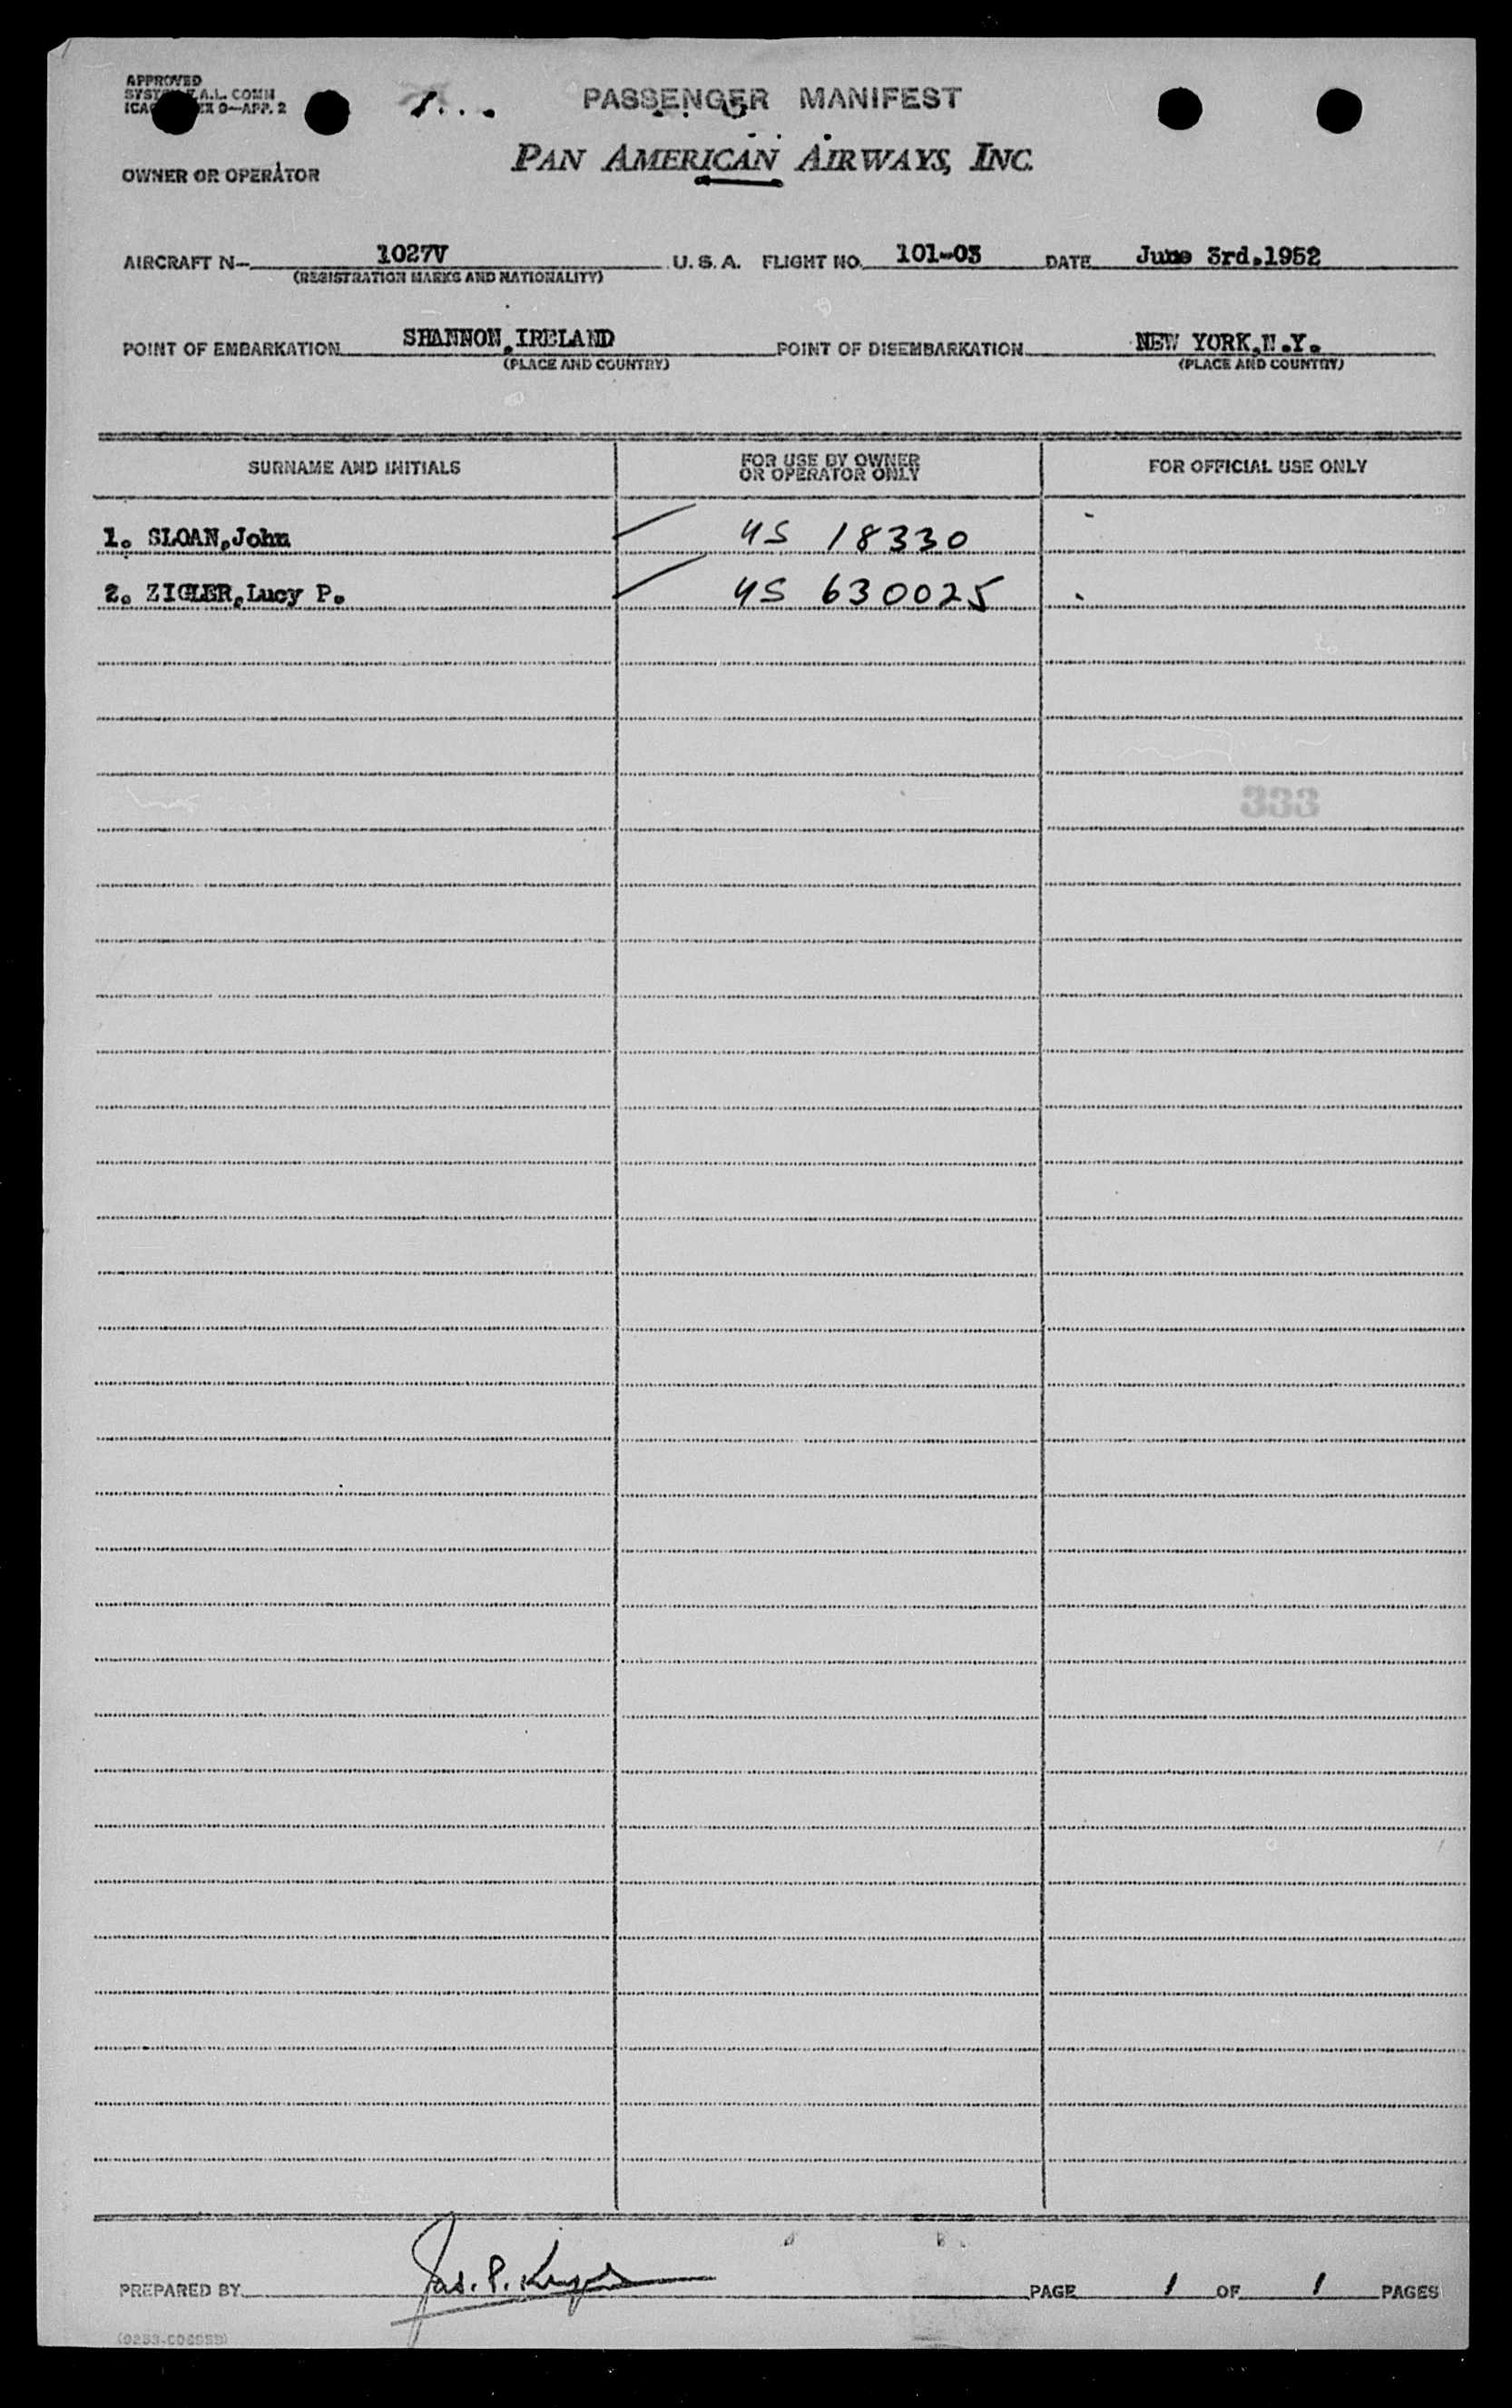 APPROVED
PASSENGER MANIFEST
A.L. COMM
APP. 2
1...
PAN AMERICAN AIRWAYS, INC.
OWNER OR OPERATOR
AIRCRAFT N- 1027V U.S.A. FLIGHT NO. 101-03 DATE June 3rd.1952
(REGISTRATION MARKS AND NATIONALITY)
POINT OF EMBARKATION SHANNON,IRELAND POINT OF DISEMBARKATION NEW YORK,N.Y.
(PLACE AND COUNTRY) (PLACE AND COUNTRY)
SURNAME AND INITIALS FOR USE BY OWNER FOR OFFICIAL USE ONLY
OR OPERATOR ONLY
1. SLOAN,John US 18330
2. ZIGLER,Lucy P. US 630025
333
PREPARED BY Jas. P. PAGE 1 OF 1 PAGES